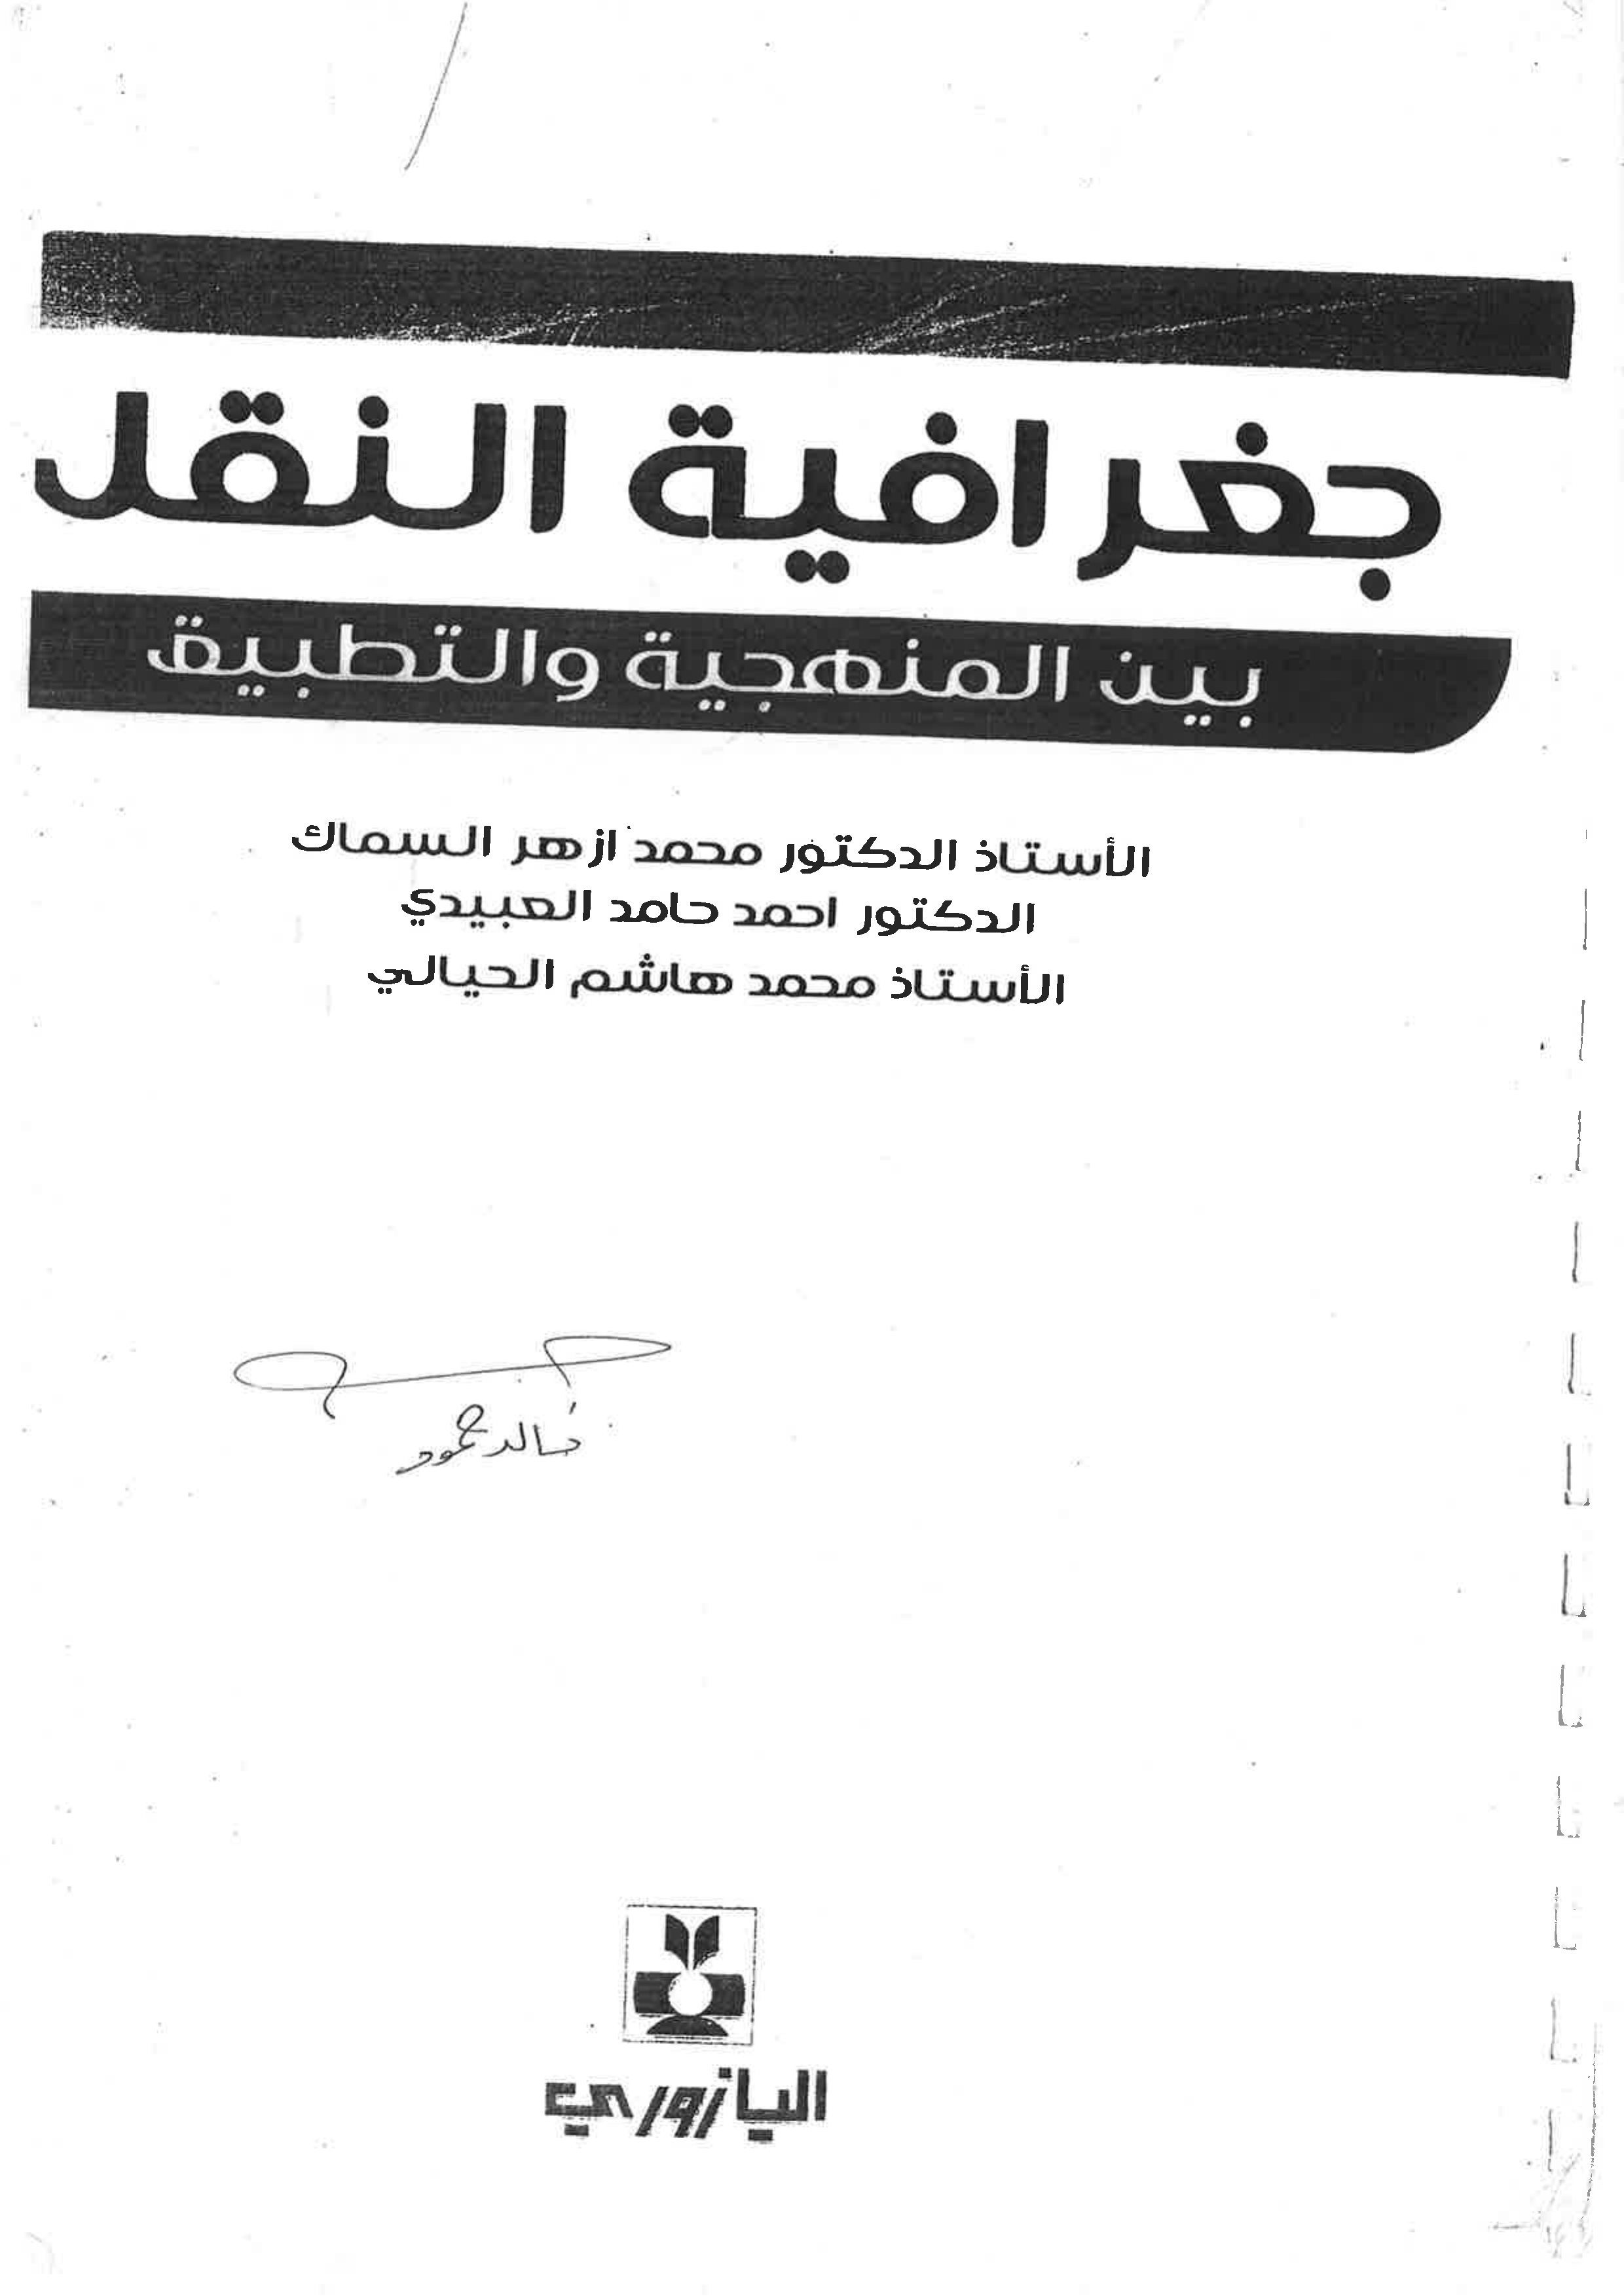 جغرافية النقل
بين المنهجية والتطبيق
الأستاذ الدكتور محمد ازهر السماك
الدكتور احمد حامد العبيدي
الأستاذ محمد هاشم الحيالي
خالد حمود
اليازوري